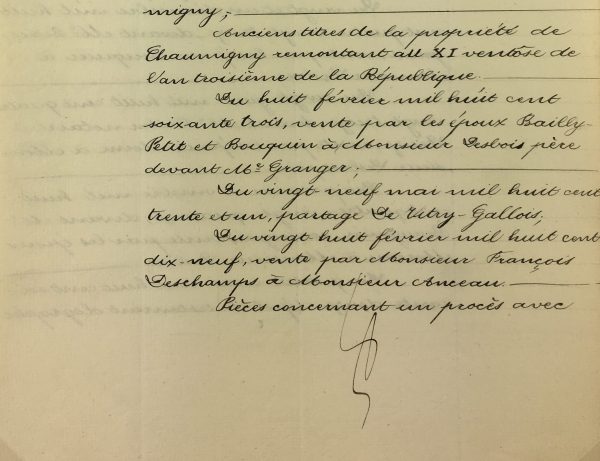 migny;
Anciens titres de la propriété de
Chaumigny remontant au XI ventôse de
l'an troisième de la République.
Du huit février mil huit cent
soixante trois, vente par les époux Bailly-
Petit et Bouquin à Monsieur Desbois père
devant Me Granger;
Du vingt neuf mai mil huit cent
trente et un, partage De Vitry-Gallois;
Du vingt huit février mil huit cent
dix-neuf, vente par Monsieur François
Deschamps à Monsieur Anceau.
Pièces concernant un procès avec